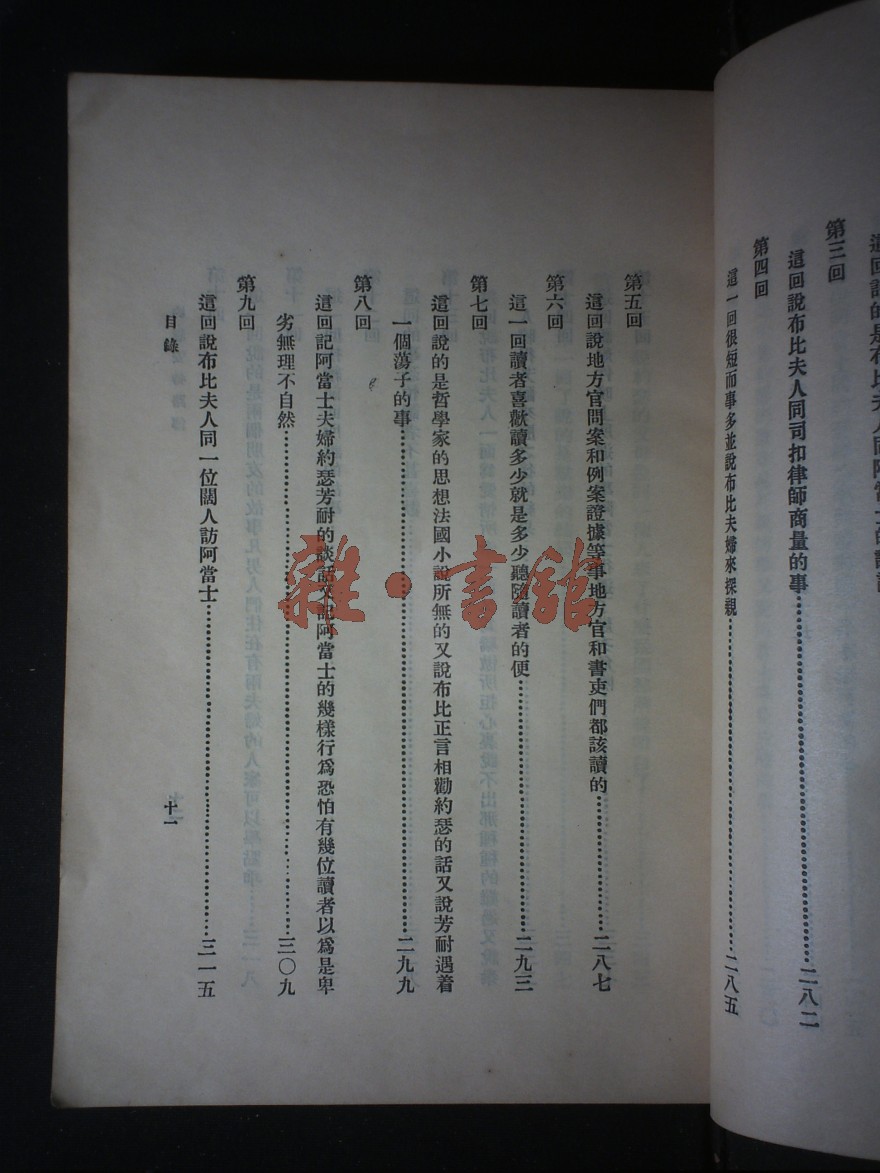 這回說的是布比夫人同阿當士的
第三回
這回說布比夫人同司扣律師商量的事……二八二
第四回
這一回很短而事多並說布比夫婦來探親……二八五
第五回
這回說地方官問案和例案證據等事地方官和書吏們都該讀的……二八七
第六回
這一回讀者喜歡讀多少就是多少聽隨讀者的便……二九三
第七回
這回說的是哲學家的思想法國小說所無的又說布比正言相勸約瑟的話又說芳耐遇着
一個蕩子的事……二九九
第八回
這回記阿當士夫婦約瑟芳耐的談話又記阿當士的幾樣行為恐怕有幾位讀者以為是卑
劣無理不自然……三〇九
第九回
這回說布比夫人同一位闊人訪阿當士……三一五
目錄
十一
雜·書館